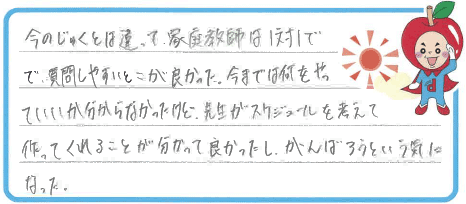 今のじゅくとは違って、家庭教師は1対1で
で、質問しやすいとこが良かった。今までは何をやっ
ていいか分からなかったけど、先生がスケジュールを考えて
作ってくれることが分かって良かったし、がんばろうという気に
なった。
d